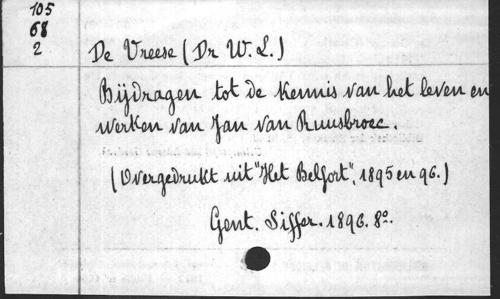 105
68
2
De Vreese (Dr W. L.)
Bijdragen tot de kennis van het leven en
werken van Jan van Ruusbroec.
(Overgedrukt uit "Het Belfort", 1895 en 96.)
Gent. Siffer. 1896. 8º.